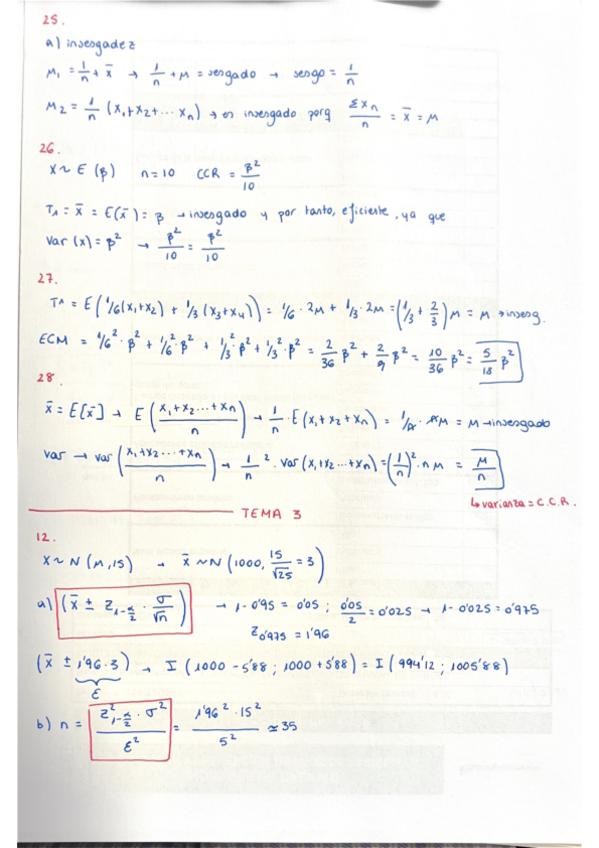 25.
a) insesgadez
μ₁ = 1/n + x̄ → 1/n + μ = sesgado → sesgo = 1/n
μ₂ = 1/n (x₁+x₂+...xₙ) → es insesgado porq Σxₙ/n = x̄ = μ
26.
X ~ E (β) n=10 CCR = β²/10
T₁ = x̄ = E(x̄) = β → insesgado y por tanto, eficiente, ya que
Var (x) = β² → β²/10 = β²/10
27.
T₁ = E(1/6(x₁+x₂) + 1/3(x₃+x₄)) = 1/6 · 2μ + 1/3 · 2μ = (1/3 + 2/3)μ = μ → insesg.
ECM = 1/6² · β² + 1/6² · β² + 1/3² · β² + 1/3² · β² = 2/36 β² + 2/9 β² = 10/36 β² = 5/18 β²
28.
x̄ = E[x̄] → E(x₁+x₂...+xₙ/n) → 1/n · E(x₁+x₂+xₙ) = 1/n · nμ = μ → insesgado
var → var(x₁+x₂...+xₙ/n) → 1/n² · var(x₁+x₂...+xₙ) = (1/n)² · nμ = μ/n
↳ varianza = C.C.R.
TEMA 3
12.
X ~ N (μ, 15) → x̄ ~ N (1000, 15/√25 = 3)
a) (x̄ ± z₁₋α/2 · σ/√n) → 1-0'95 = 0'05 ; 0'05/2 = 0'025 → 1-0'025 = 0'975
z₀'₉₇₅ = 1'96
(x̄ ± 1'96·3) → I (1000 - 5'88 ; 1000 + 5'88) = I (994'12 ; 1005'88)
ε
b) n = z²₁₋α/2 · σ²/ε² = 1'96² · 15²/5² ≃ 35